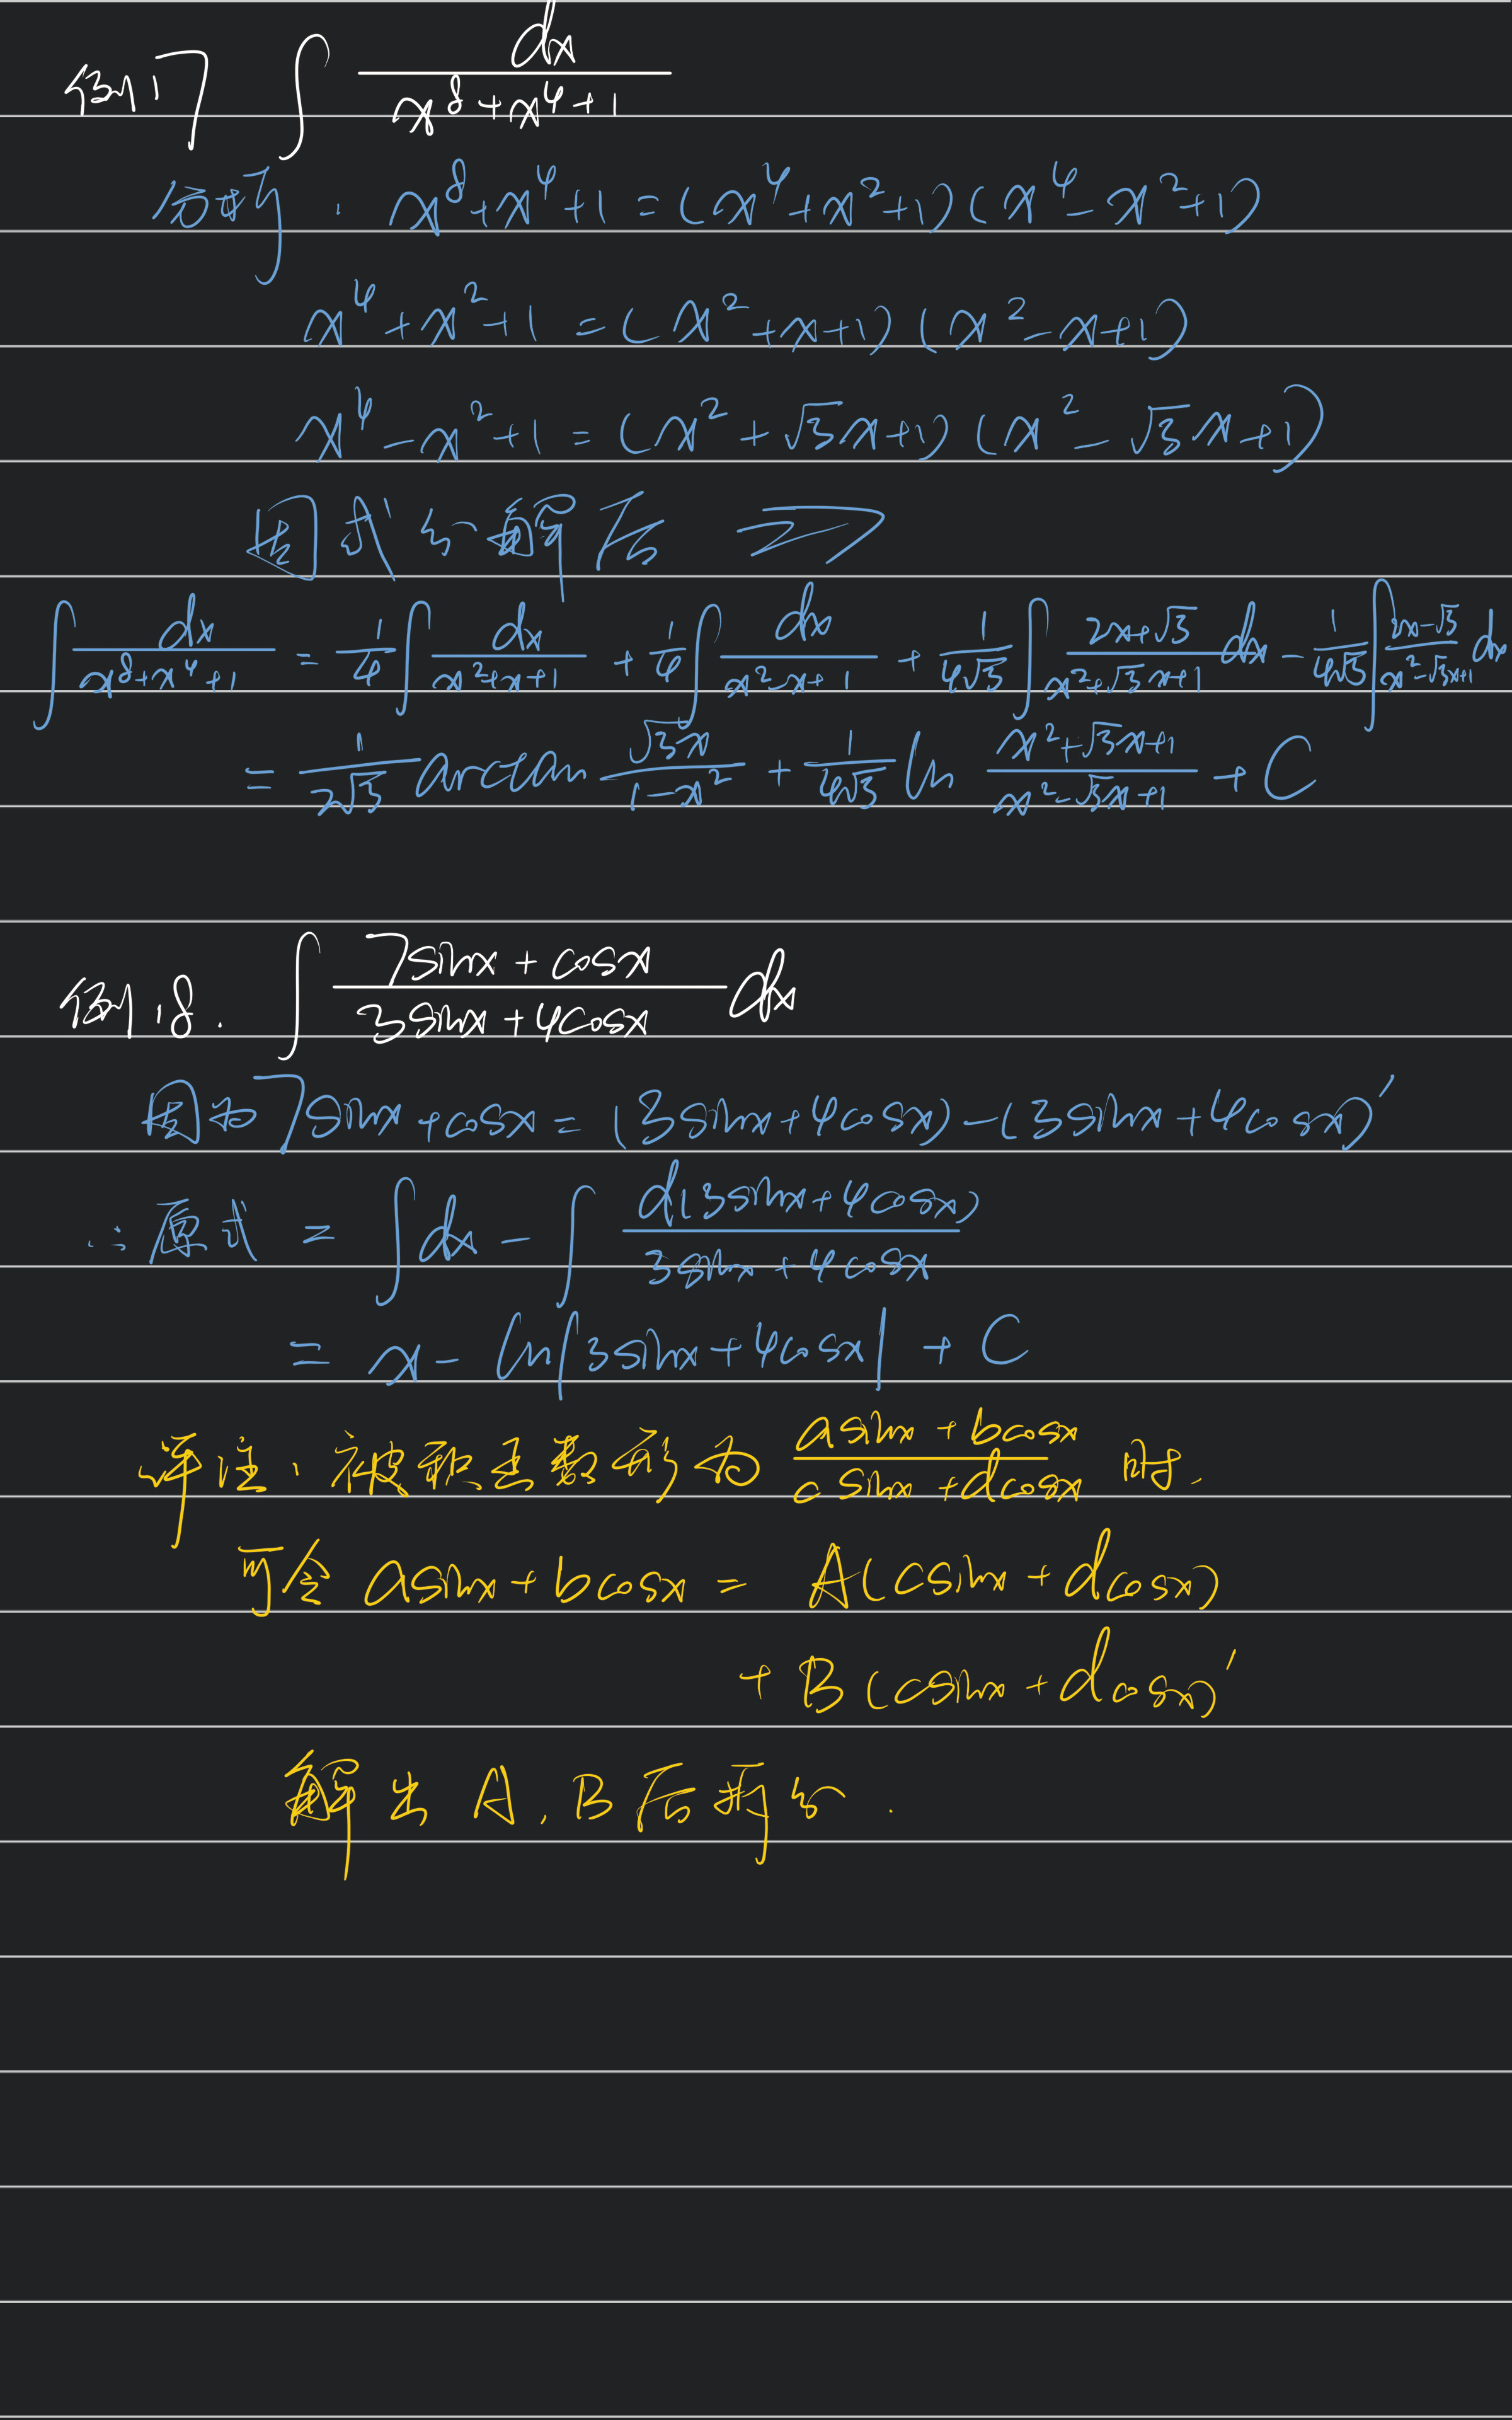 例17 ∫ dx/(x⁸+x⁴+1)
分析: x⁸+x⁴+1=(x⁴+x²+1)(x⁴-x²+1)
x⁴+x²+1=(x²+x+1)(x²-x+1)
x⁴-x²+1=(x²+√3x+1)(x²-√3x+1)
因式分解后 ⇒
∫ dx/(x⁸+x⁴+1) = 1/4 ∫ dx/(x²+x+1) + 1/4 ∫ dx/(x²-x+1) + 1/(4√3) ∫ (2x+√3)/(x²+√3x+1) dx - 1/(4√3) ∫ (2x-√3)/(x²-√3x+1) dx
= 1/(2√3) arctan (√3x)/(1-x²) + 1/(4√3) ln (x²+√3x+1)/(x²-√3x+1) + C
例18. ∫ (7sinx+cosx)/(3sinx+4cosx) dx
因为7sinx+cosx=(3sinx+4cosx)-(3sinx+4cosx)'
∴原式 = ∫dx - ∫ d(3sinx+4cosx)/(3sinx+4cosx)
= x - ln|3sinx+4cosx| + C
评注: 被积函数形为 (asinx+bcosx)/(csinx+dcosx) 时.
可令 asinx+bcosx = A(csinx+dcosx)
+ B(csinx+dcosx)'
解出 A, B后再分.